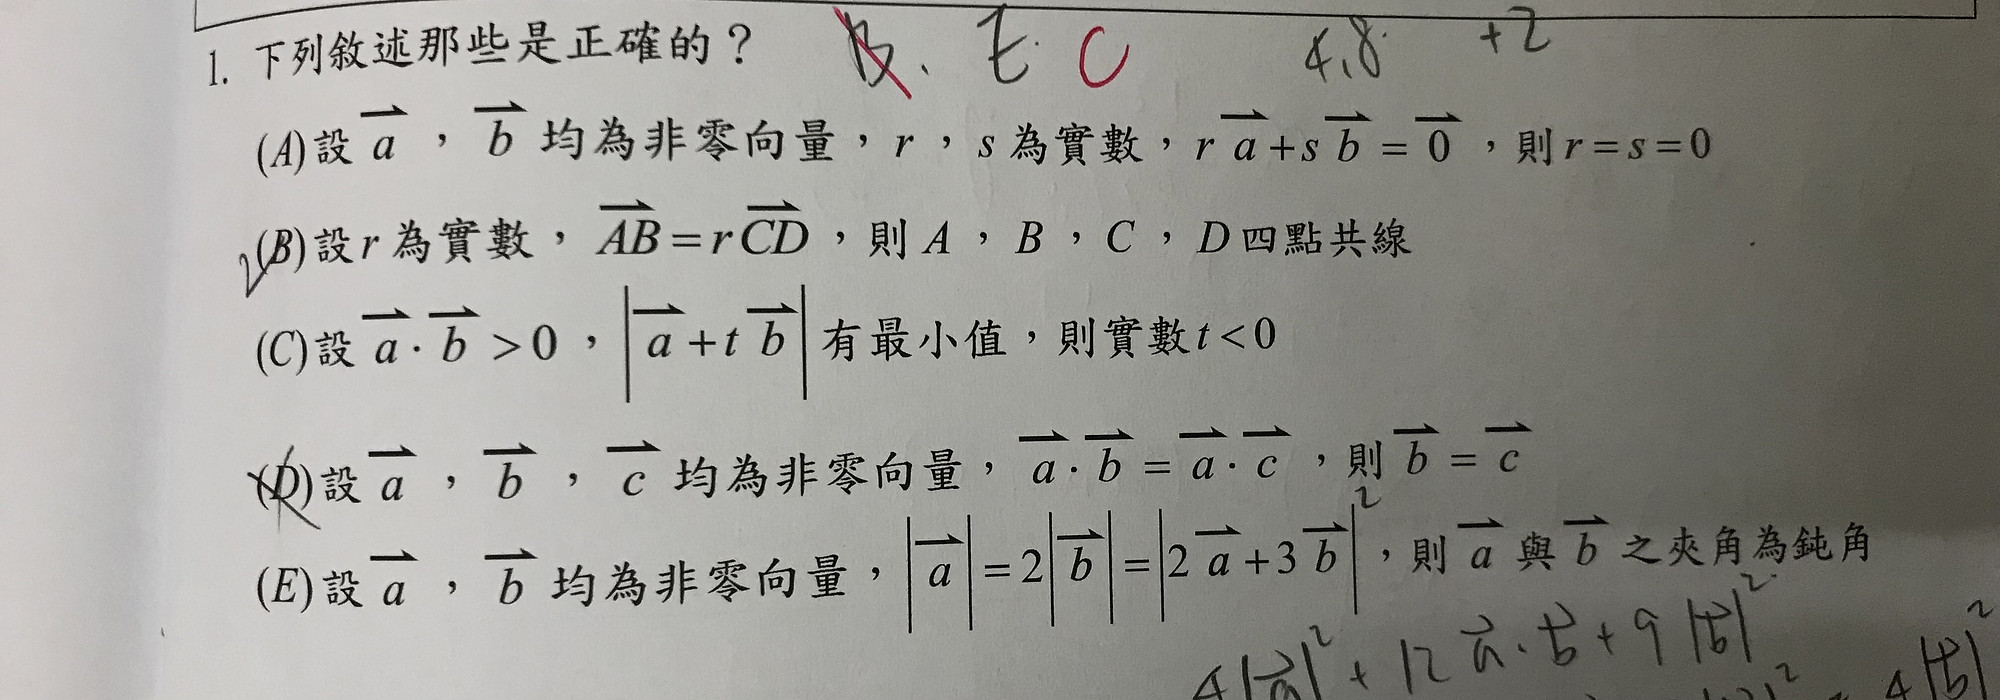 1. 下列敘述那些是正確的？ B. E. C 4.8 +2
(A)設 $\overrightarrow{a}$ ， $\overrightarrow{b}$ 均為非零向量，r，s 為實數，r$\overrightarrow{a}$+s$\overrightarrow{b}$ = $\overrightarrow{0}$ ，則 r = s = 0
(B)設 r 為實數， $\overrightarrow{AB}$ = r$\overrightarrow{CD}$ ，則 A ， B ， C ， D 四點共線
(C)設 $\overrightarrow{a}$ · $\overrightarrow{b}$ > 0 ， |$\overrightarrow{a}$ + t$\overrightarrow{b}$| 有最小值，則實數 t < 0
(D)設 $\overrightarrow{a}$ ， $\overrightarrow{b}$ ， $\overrightarrow{c}$ 均為非零向量， $\overrightarrow{a}$ · $\overrightarrow{b}$ = $\overrightarrow{a}$ · $\overrightarrow{c}$ ，則 $\overrightarrow{b}$ = $\overrightarrow{c}$
(E)設 $\overrightarrow{a}$ ， $\overrightarrow{b}$ 均為非零向量， |$\overrightarrow{a}$| = 2|$\overrightarrow{b}$| = |2$\overrightarrow{a}$ + 3$\overrightarrow{b}$|² ，則 $\overrightarrow{a}$ 與 $\overrightarrow{b}$ 之夾角為鈍角
4|$\overrightarrow{a}$|² + 12 $\overrightarrow{a}$ · $\overrightarrow{b}$ + 9|$\overrightarrow{b}$|²
4|$\overrightarrow{b}$|²